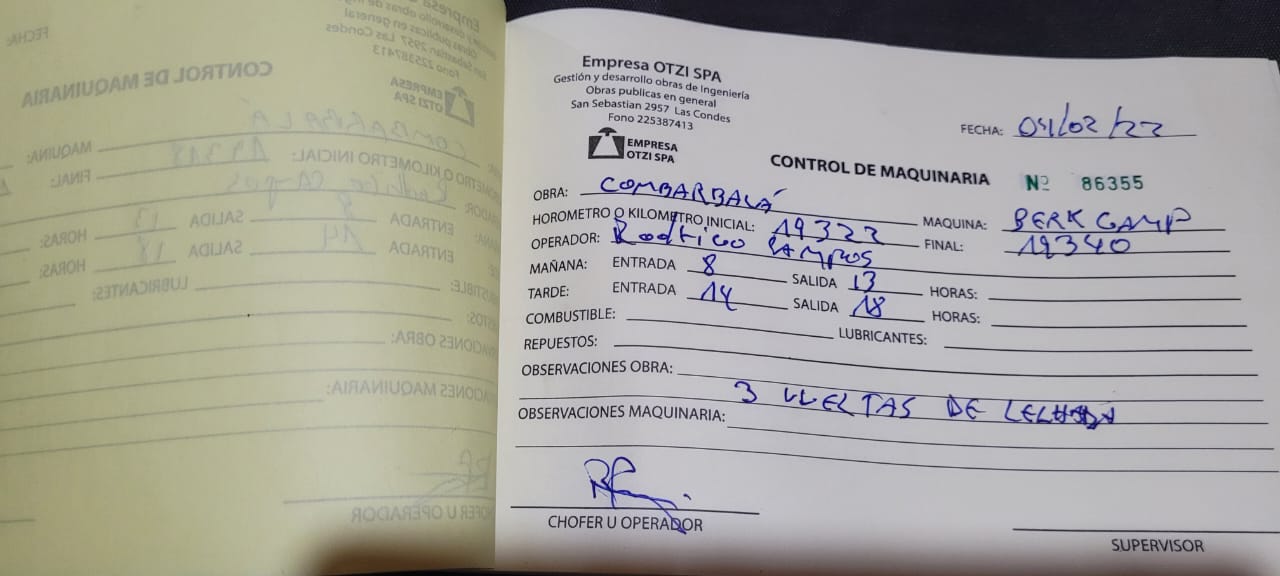 Empresa OTZI SPA
Gestión y desarrollo obras de Ingeniería
Obras publicas en general
San Sebastian 2957 Las Condes
Fono 225387413
EMPRESA
OTZI SPA
FECHA: 04/02/22
CONTROL DE MAQUINARIA Nº 86355
OBRA: COMBARBALÁ MAQUINA: BERK CAMP
HOROMETRO O KILOMETRO INICIAL: 19322 FINAL: 19340
OPERADOR: Rodrigo CAMPOS
MAÑANA: ENTRADA 8 SALIDA 13 HORAS:
TARDE: ENTRADA 14 SALIDA 18 HORAS:
COMBUSTIBLE: LUBRICANTES:
REPUESTOS:
OBSERVACIONES OBRA:
3 VUELTAS DE LECHADA
OBSERVACIONES MAQUINARIA:
CHOFER U OPERADOR
SUPERVISOR